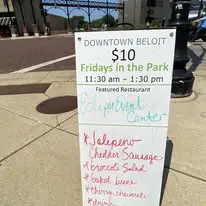 DOWNTOWN BELOIT
$10
Fridays in the Park
11:30 am – 1:30 pm
Featured Restaurant
Eclipse Event
Center
*Jalapeno
Cheddar Sausage
*broccoli Salad
*baked beans
*cheesecake
*drink